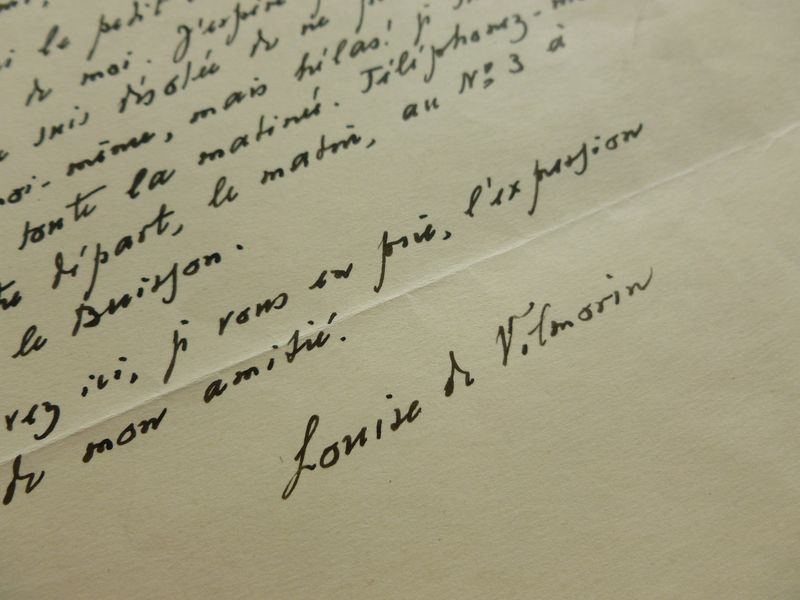 le petit
de moi. J'espère
suis désolée de ne
moi-même, mais hélas! je
toute la matinée. Téléphonez-m
départ, le matin, au Nº 3 à
le Buisson.
rez ici, je vous en prie, l'expression
de mon amitié.
Louise de Vilmorin